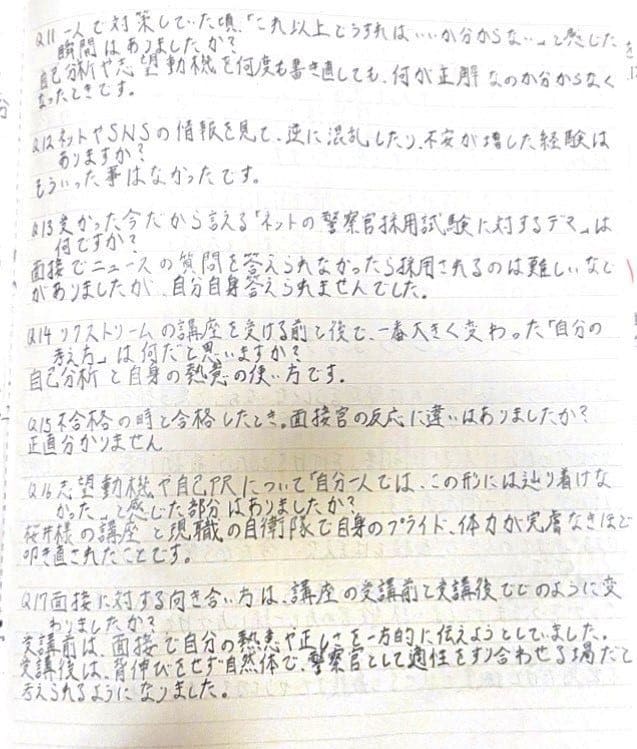 Q11一人で対策していた頃、「これ以上どうすればいいか分からない」と感じた
瞬間はありましたか？
自己分析や志望動機を何度も書き直しても、何が正解なのか分からなく
なったときです。
Q12ネットやSNSの情報を見て、逆に混乱したり、不安が増した経験は
ありますか？
もういった事はなかったです。
Q13受かった今だから言える「ネットの警察官採用試験に対するデマ」は
何ですか？
面接でニュースの質問を答えられなかったら採用されるのは難しいなど
がありましたが、自分自身答えられませんでした。
Q14リクストリームの講座を受ける前と後で、一番大きく変わった「自分の
考え方」は何だと思いますか？
自己分析と自身の熱意の使い方です。
Q15不合格の時と合格したとき。面接官の反応に違いはありましたか？
正直分かりません
Q16志望動機や自己PRについて「自分一人では、この形には辿り着けな
かった」と感じた部分はありましたか？
桜井様の講座と現職の自衛隊で自身のプライド、体力が完膚なきほど
叩き直されたことです。
Q17面接に対する向き合い方は、講座の受講前と受講後でどのように変
わりましたか？
受講前は、面接で自分の熱意や正しさを一方的に伝えようとしていました。
受講後は、背伸びをせず自然体で、警察官として適性をすり合わせる場だと
考えられるようになりました。